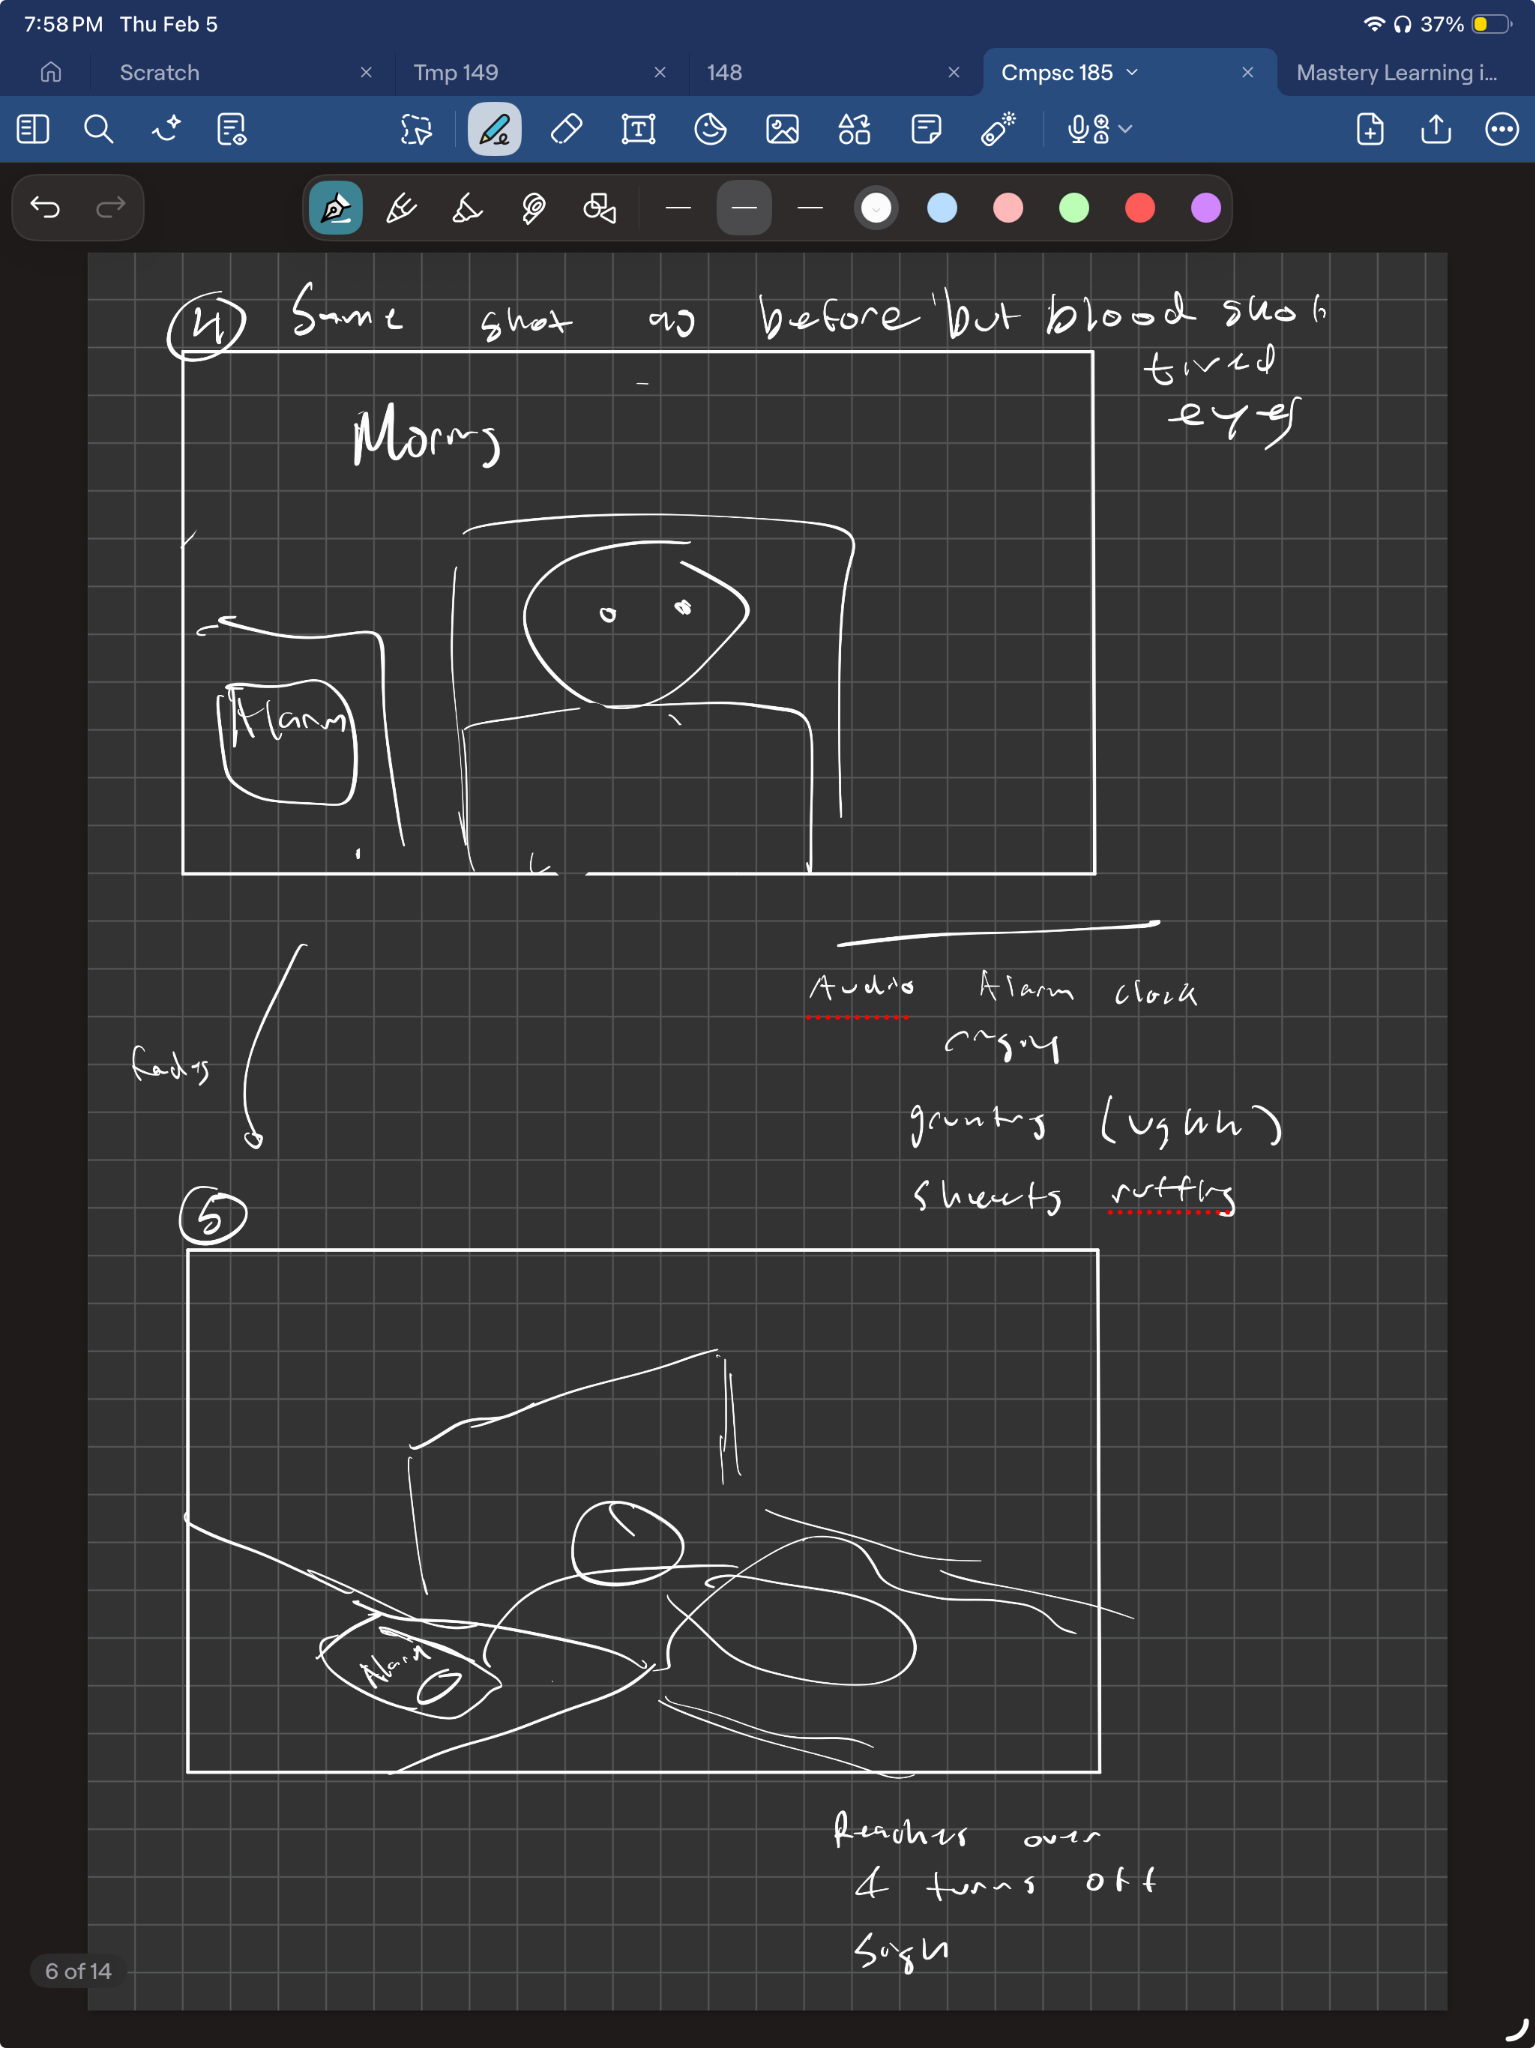 7:58 PM Thu Feb 5
37%
Scratch
Tmp 149
148
Cmpsc 185
Mastery Learning i...
4 Same shot as before but blood shot
tired
eyes
Morning
Alarm
Audio Alarm clock
grunting (ughh)
sheets
5
Alarm
Reaches over
& turns off
sigh
6 of 14